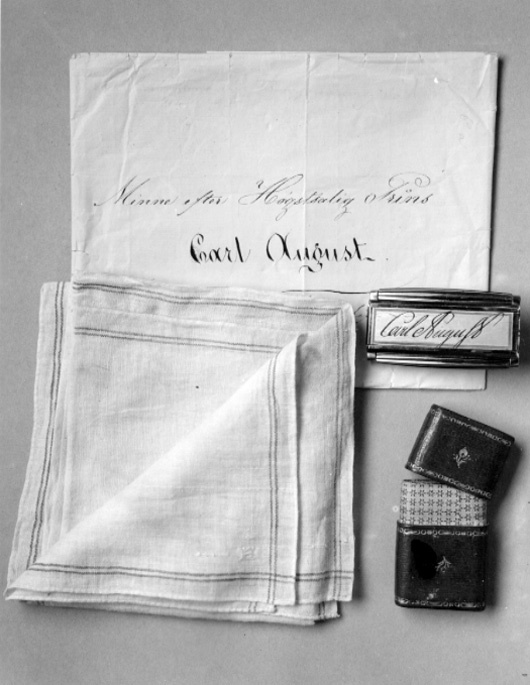 Minne efter Högstsalig Prins
Carl August.
Carl August